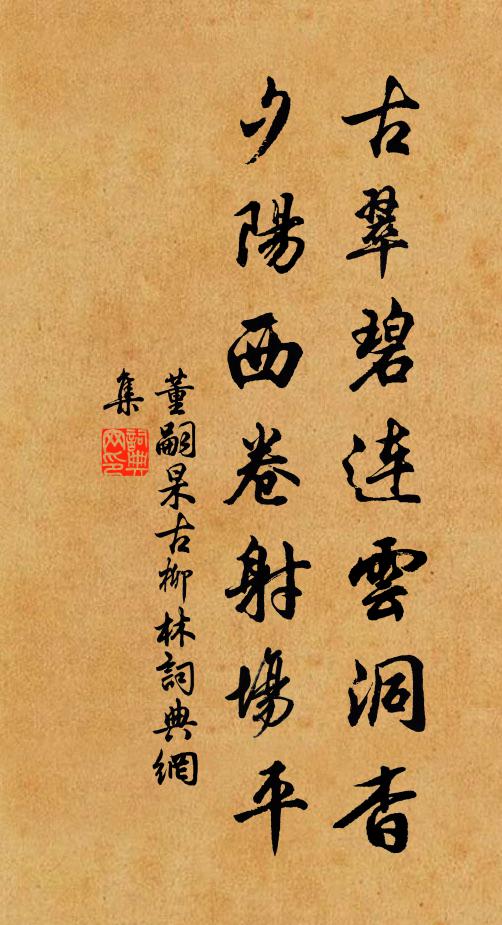 古翠碧連雲洞杳
夕陽西卷射場平
董嗣杲古柳林詞典網
集
詞典
网印